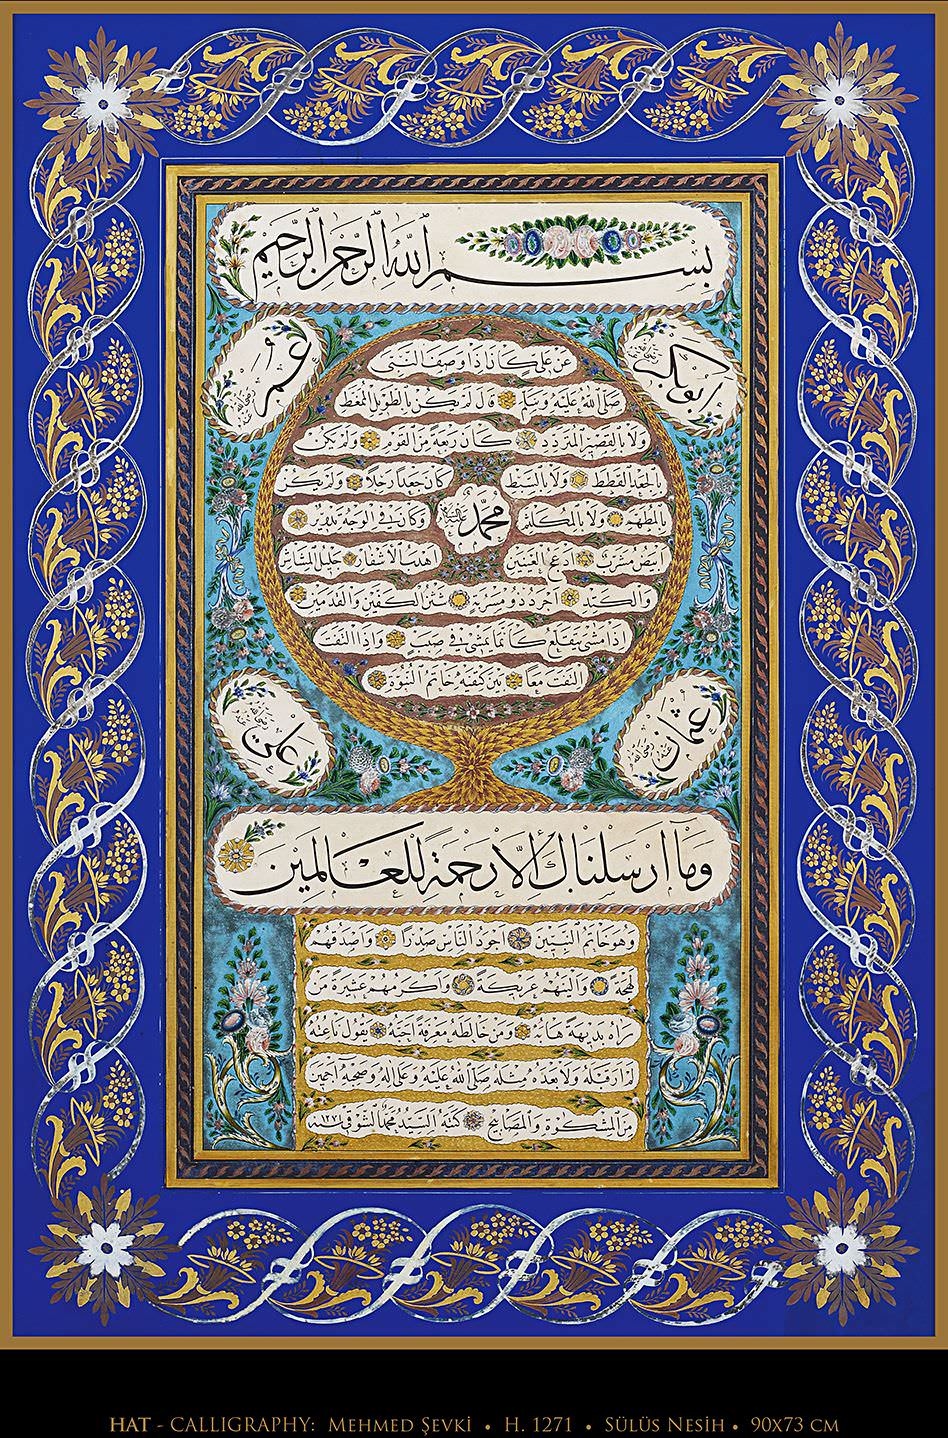 بسم الله الرحمن الرحيم
ابوبكر رضي الله عنه
عمر رضي الله عنه
عن علي كان اذا وصف النبي
صلى الله عليه وسلم قال لم يكن بالطويل الممغط
ولا بالقصير المتردد كان ربعة من القوم ولم يكن
بالجعد القطط ولا بالسبط كان جعدا رجلا ولم يكن
بالمطهم ولا بالمكلثم وكان في الوجه تدوير
محمد عليه السلام
ابيض مشرب ادعج العينين اهدب الاشفار جليل المشاش
والكتد اجرد ذو مسربة شثن الكفين والقدمين
اذا مشى يتقلع كانما يمشي في صبب واذا التفت
التفت معا بين كتفيه خاتم النبوة
عثمان رضي الله عنه
علي رضي الله عنه
وما ارسلناك الا رحمة للعالمين
وهو خاتم النبيين اجود الناس صدرا واصدقهم
لهجة والينهم عريكة واكرمهم عشيرة من
رآه بديهة هابه ومن خالطه معرفة احبه يقول ناعته
لم ار قبله ولا بعده مثله صلى الله عليه وعلى اله وصحبه اجمعين
من المشكوة والمصابيح كتبه السيد محمد الشوقي ١٢٧١
HAT - CALLIGRAPHY: MEHMED ŞEVKİ • H. 1271 • SÜLÜS NESİH • 90X73 CM